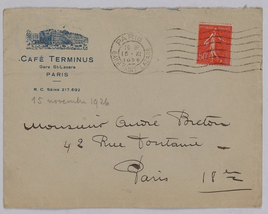 CAFÉ TERMINUS
Gare St-Lazare
PARIS
R. C. Seine 217.693
PARIS
15 novembre 1926
Monsieur André Breton
42 Rue Fontaine
Paris 18